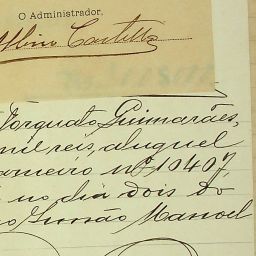 O Administrador,
Albino Castello
Torquato Guimarães,
mil reis, aluguel
aneiro nº 10407,
no dia dois do
Gusmão Manoel